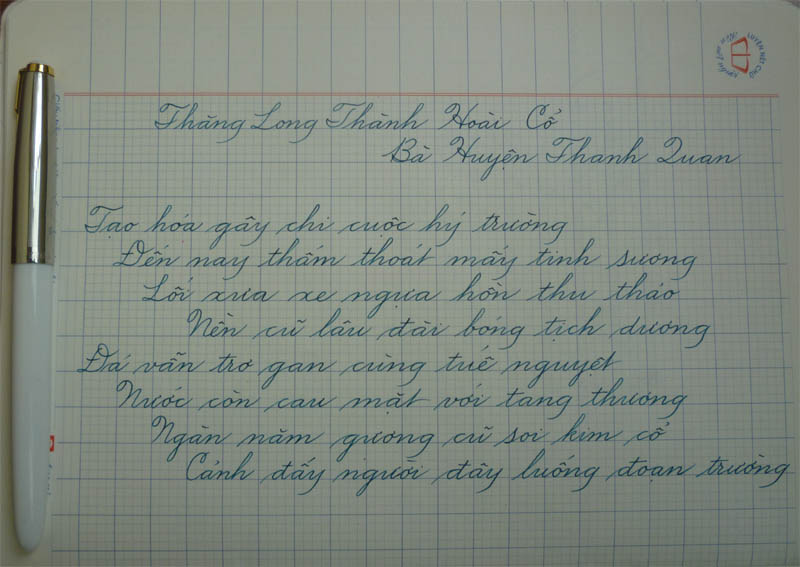 Thăng Long Thành Hoài Cổ
Bà Huyện Thanh Quan
Tạo hóa gây chi cuộc hý trường
Đến nay thấm thoát mấy tinh sương
Lối xưa xe ngựa hồn thu thảo
Nền cũ lâu đài bóng tịch dương
Đá vẫn trơ gan cùng tuế nguyệt
Nước còn cau mặt với tang thương
Ngàn năm gương cũ soi kim cổ
Cảnh đấy người đây luống đoạn trường